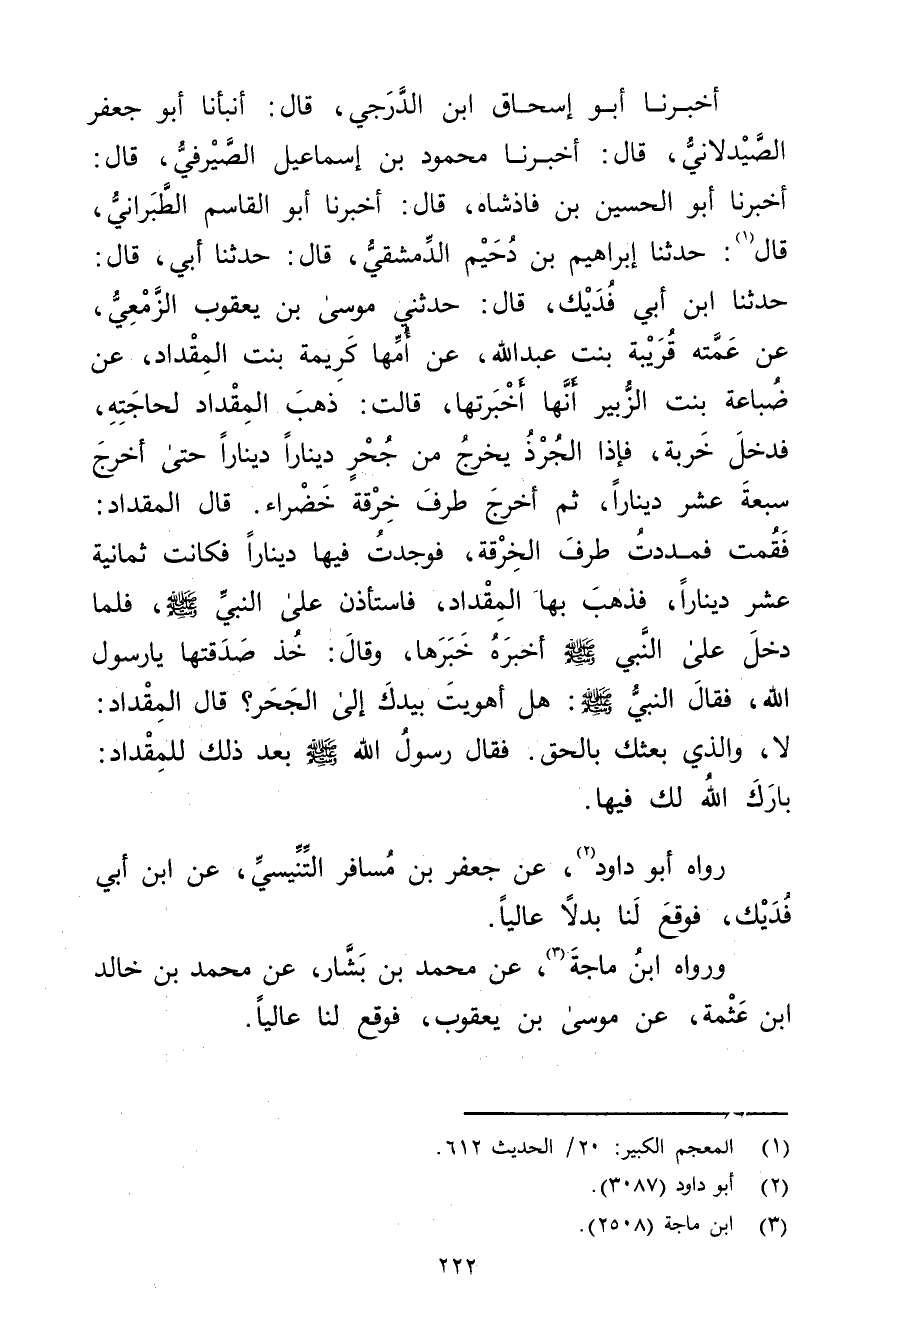 أخبرنا أبو إسحاق ابن الدَّرَجي، قال: أنبأنا أبو جعفر
الصَّيْدلانيُّ، قال: أخبرنا محمود بن إسماعيل الصَّيْرفيُّ، قال:
أخبرنا أبو الحسين بن فاذشاه، قال: أخبرنا أبو القاسم الطَّبَرانيُّ،
قال(١): حدثنا إبراهيم بن دُحَيْم الدِّمشقيُّ، قال: حدثنا أبي، قال:
حدثنا ابن أبي فُدَيْك، قال: حدثني موسىٰ بن يعقوب الزَّمْعِيُّ،
عن عَمَّته قُرَيْبة بنت عبدالله، عن أُمِّها كَرِيمة بنت المِقْداد، عن
ضُباعة بنت الزُّبير أَنَّها أَخْبَرتها، قالت: ذهبَ المِقْداد لحاجَتِهِ،
فدخلَ خَربة، فإذا الجُرْذُ يخرجُ من جُحْرٍ ديناراً ديناراً حتىٰ أخرجَ
سبعةَ عشر ديناراً، ثم أخرجَ طرفَ خِرْقة خَضْراء. قال المقداد:
فَقُمت فمددتُ طرفَ الخِرْقة، فوجدتُ فيها ديناراً فكانت ثمانية
عشر ديناراً، فذهبَ بها المِقْداد، فاستأذن علىٰ النبيِّ ﷺ، فلما
دخلَ علىٰ النَّبي ﷺ أخبرَهُ خَبَرَها، وقالَ: خُذ صَدَقتها يارسول
الله، فقالَ النبيُّ ﷺ: هل أهويتَ بيدكَ إلىٰ الجَحَر؟ قال المِقْداد:
لا، والذي بعثك بالحق. فقال رسولُ الله ﷺ بعد ذلك للمِقْداد:
بارَكَ اللهُ لك فيها.
رواه أبو داود(٢)، عن جعفر بن مُسافر التِّنِّيسيِّ، عن ابن أبي
فُدَيْك، فوقعَ لَنا بدلًا عالياً.
ورواه ابنُ ماجةَ(٣)، عن محمد بن بَشَّار، عن محمد بن خالد
ابن عَثْمة، عن موسىٰ بن يعقوب، فوقع لنا عالياً.
(١) المعجم الكبير: ٢٠/ الحديث ٦١٢.
(٢) أبو داود (٣٠٨٧).
(٣) ابن ماجة (٢٥٠٨).
٢٢٢